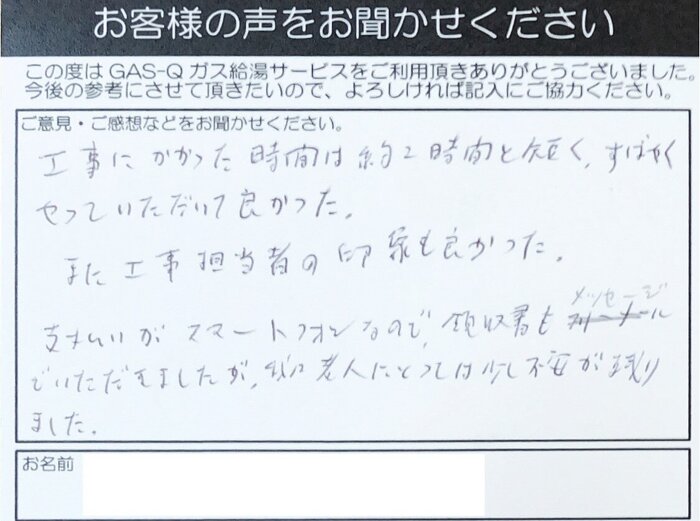 お客様の声をお聞かせください
この度はGAS-Qガス給湯サービスをご利用頂きありがとうございました。
今後の参考にさせて頂きたいので、よろしければ記入にご協力ください。
ご意見・ご感想などをお聞かせください。
工事にかかった時間は約2時間と短く、すばやく
やっていただいて良かった。
また工事担当者の印象も良かった。
支払いがスマートフォンなので、領収書もメッセージ
でいただきましたが、老人にとっては少し不安が残り
ました。
お名前